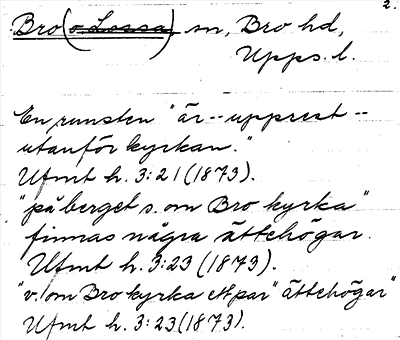 2.
Bro (o Lossa) sn, Bro hd,
Upps. l.
En runsten "är -- upprest --
utanför kyrkan."
Ufmt h. 3:21 (1873).
"på berget s. om Bro kyrka"
finnas några ättehögar.
Ufmt h. 3:23 (1873).
"v. om Bro kyrka ett par "ättehögar"
Ufmt h. 3:23 (1873).